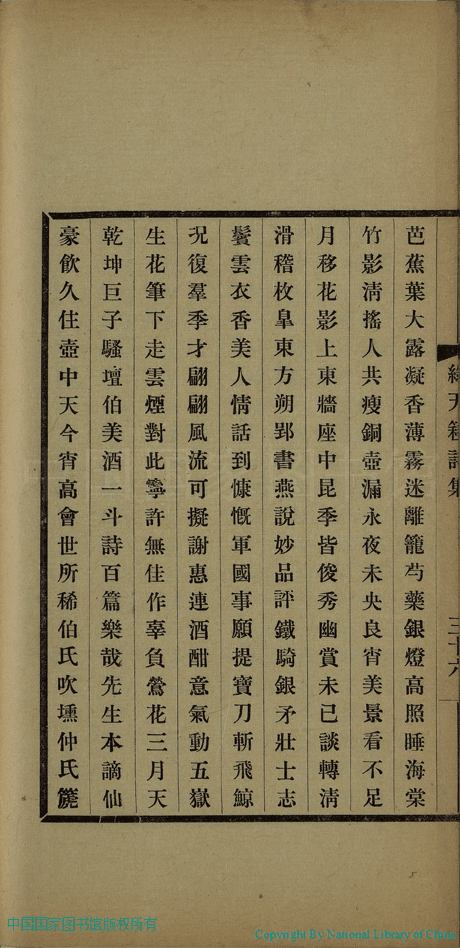 芭蕉葉大露凝香薄霧迷離籠芍藥銀燈高照睡海棠
竹影淸搖人共瘦銅壺漏永夜未央良宵美景看不足
月移花影上東牆座中昆季皆俊秀幽賞未已談轉淸
滑稽枚皐東方朔郢書燕說妙品評鐵騎銀矛壯士志
鬢雲衣香美人情話到慷慨軍國事願提寶刀斬飛鯨
况復羣季才翩翩風流可擬謝惠連酒酣意氣動五嶽
生花筆下走雲煙對此寧許無佳作辜負鶯花三月天
乾坤巨子騷壇伯美酒一斗詩百篇樂哉先生本謫仙
豪飮久住壺中天今宵高會世所稀伯氏吹壎仲氏篪
天籟詩集
三十六
中国国家图书馆版权所有
Copyright By National Library of China